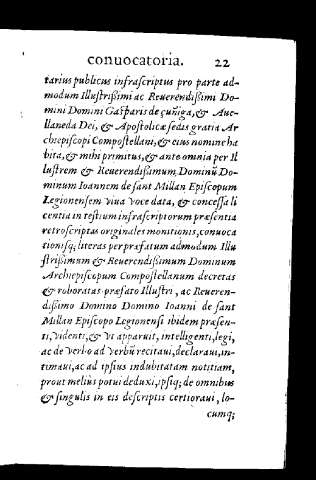 conuocatoria. 22
tarius publicus infrascriptus pro parte ad-
modum Illustrißimi ac Reuerendißimi Do-
mini Domini Gasparis de çuñiga, & Aue-
llaneda Dei, & Apostolicæ sedis gratia Ar
chiepiscopi Compostellani, & eius nomine ha
bita, & mihi primitus, & ante omnia per Il
lustrem & Reuerendißimum, Dominū Do-
minum Ioannem de sant Millan Episcopum
Legionensem viua voce data, & concessa li
centia in testium infrascriptorum præsentia
retroscriptas originales monitionis, conuoca
tionisq; literas per præfatum admodum Illu
strißimum & Reuerendißimum Dominum
Archiepiscopum Compostellanum decretas
& roboratas præfato Illustri, ac Reueren-
dißimo Domino Domino Ioanni de sant
Millan Episcopo Legionensi ibidem præsen-
ti, videnti, & vt apparuit, intelligenti, legi,
ac de verbo ad verbū recitaui, declaraui, in-
timaui, ac ad ipsius indubitatam notitiam,
prout melius potui deduxi, ipsiq; de omnibus
& singulis in eis descriptis certioraui, lo-
cumq;